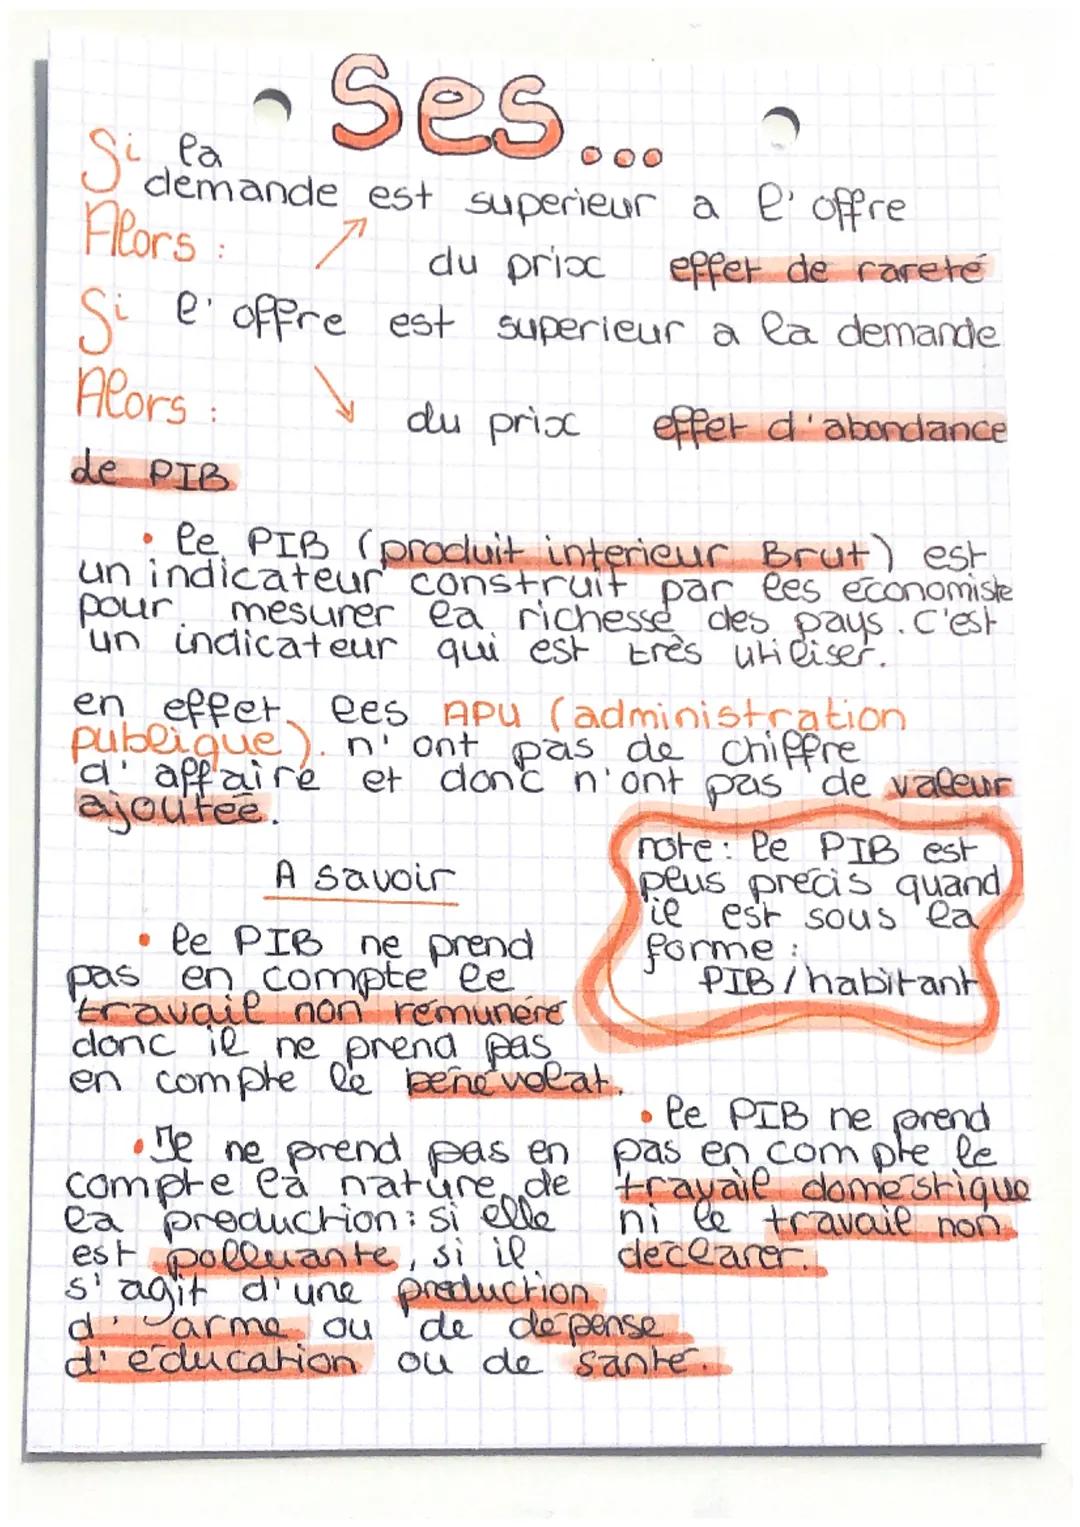 Ses...
Si la
demande est superieur a l'offre
Alors : ↗ du prix effet de rareté
Si l'offre est superieur a la demande
Alors : ↘ du prix effet d'abondance
de PIB
• le PIB (produit interieur Brut) est
un indicateur construit par les économiste
pour mesurer la richesse des pays. C'est
un indicateur qui est très utiliser.
en effet, les APU (administration
publique). n'ont pas de chiffre
d'affaire et donc n'ont pas de valeur
ajoutée.
note: le PIB est
plus précis quand
il est sous la
forme :
PIB/habitant
A savoir
• le PIB ne prend
pas en compte le
travail non rémunéré
donc il ne prend pas
en compte le bénévolat.
• Je ne prend pas en
compte la nature de
la production: si elle
est polluante, si il
s'agit d'une production
d'arme ou de dépense
d'éducation ou de santé.
• le PIB ne prend
pas en compte le
travail domestique
ni le travail non
déclarer.